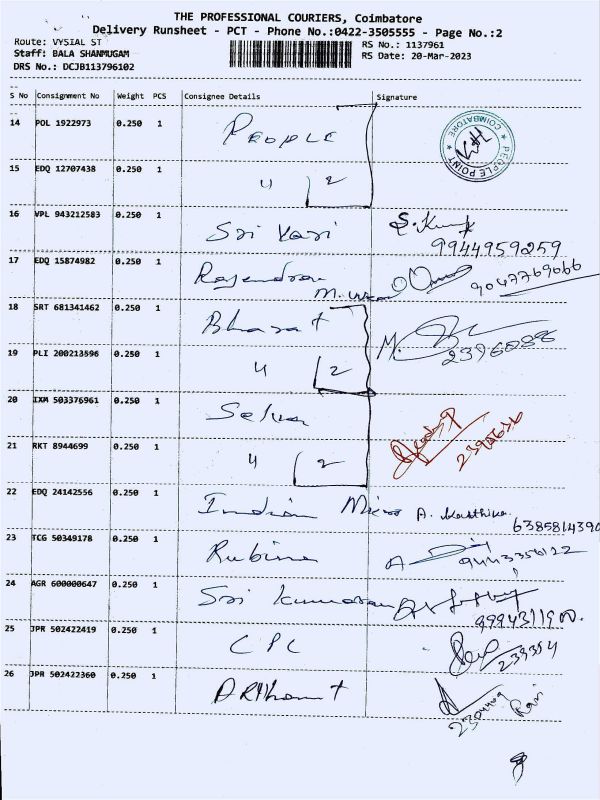 THE PROFESSIONAL COURIERS, Coimbatore
Delivery Runsheet - PCT - Phone No.:0422-3505555 - Page No.:2
Route: VYSIAL ST
RS No.: 1137961
Staff: BALA SHANMUGAM
RS Date: 20-Mar-2023
DRS No.: DCJB113796102
S No Consignment No Weight PCS Consignee Details Signature
14 POL 1922973 0.250 1 PEOPLE
COIMBATORE ★ PEOPLE POINT ★
15 EDQ 12707438 0.250 1 4 2
16 VPL 943212583 0.250 1 Sri Kari S. Kumar
9944959259
17 EDQ 15874982 0.250 1 Rajendran 9047769066
18 SRT 681341462 0.250 1 Bharat M.
2396088
19 PLI 200213596 0.250 1 4 2
20 IXM 503376961 0.250 1 Selva
21 RKT 8944699 0.250 1 4 2
22 EDQ 24142556 0.250 1 Indian Micro A. Karthika
6385814390
23 TCG 50349178 0.250 1 Rubine A
9443356122
24 AGR 600000647 0.250 1 Sri Kumaran
25 JPR 502422419 0.250 1 CPC
239354
26 JPR 502422360 0.250 1 ARIhant
Ravi